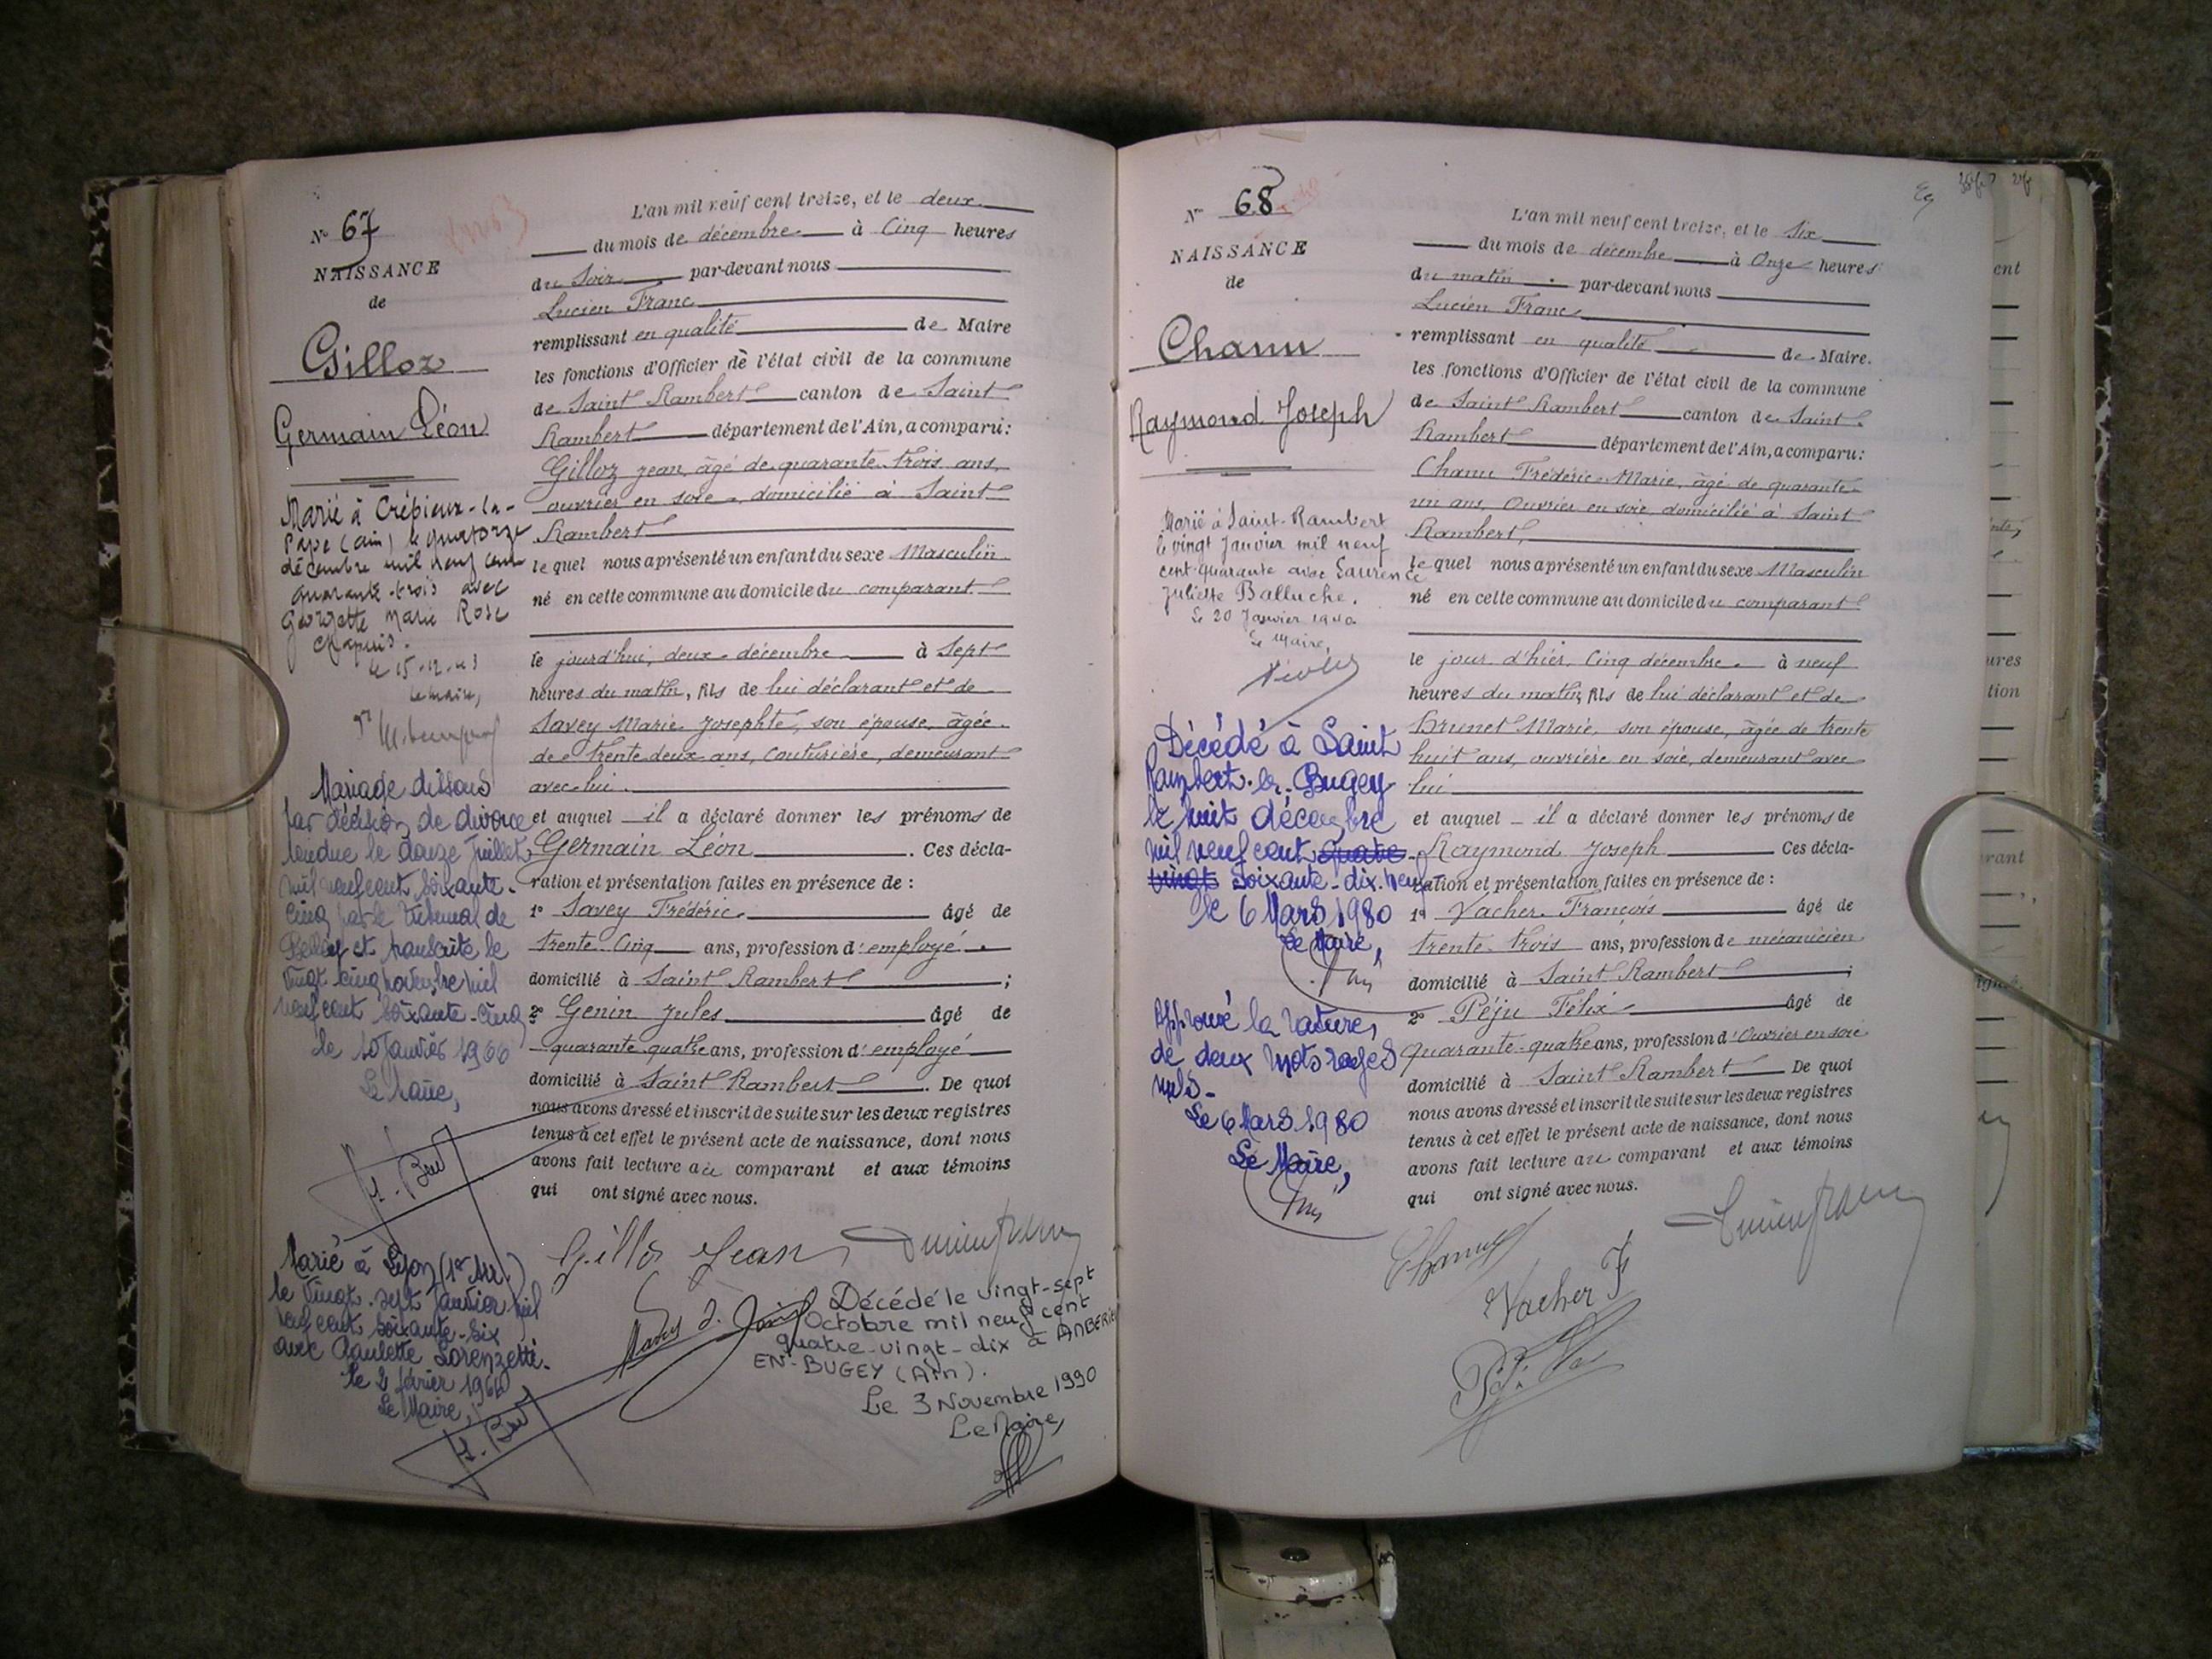 Nº 67
NAISSANCE
de
Gilloz
Germain Léon
Marié à Crépieux-la-
Pape (ain) le quatorze
décembre mil neuf cent
quarante-trois avec
Georgette Marie Rose
Chapuis.
le 15-12-43
Le maire,
Mariage dissous
par décision de divorce
rendue le douze Juillet
mil neuf cent soixante-
cinq par le Tribunal de
Belley et transcrite le
vingt-cinq novembre mil
neuf cent soixante-cinq
le 10 Janvier 1966
Le Maire,
Marié à Lyon (1er Arr.)
le vingt-sept Janvier mil
neuf cent soixante-six
avec Paulette Lorenzetti.
le 2 février 1966
Le Maire,
L'an mil neuf cent treize, et le deux
du mois de décembre à Cinq heures
du Soir par-devant nous
Lucien Franc
remplissant en qualité de Maire
les fonctions d'Officier de l'état civil de la commune
de Saint Rambert canton de Saint
Rambert département de l'Ain, a comparu:
Gilloz Jean, âgé de quarante trois ans,
ouvrier en soie, domicilié à Saint
Rambert
lequel nous a présenté un enfant du sexe Masculin
né en cette commune au domicile du comparant
le jourd'hui, deux décembre à Sept
heures du matin, fils de lui déclarant et de
Savey Marie Josephte, son épouse, âgée
de trente deux ans, couturière, demeurant
avec lui
et auquel il a déclaré donner les prénoms de
Germain Léon. Ces décla-
ration et présentation faites en présence de :
1º Savey Frédéric âgé de
trente cinq ans, profession d'employé
domicilié à Saint Rambert ;
2º Genin Jules âgé de
quarante quatre ans, profession d'employé
domicilié à Saint Rambert. De quoi
nous avons dressé et inscrit de suite sur les deux registres
tenus à cet effet le présent acte de naissance, dont nous
avons fait lecture au comparant et aux témoins
qui ont signé avec nous.
Gilloz Jean
Décédé le vingt-sept
Octobre mil neuf cent
quatre-vingt-dix à AMBERIEU
EN-BUGEY (Ain).
Le 3 Novembre 1990
Le Maire,
Nº 68
NAISSANCE
de
Chanu
Raymond Joseph
Marié à Saint-Rambert
le vingt Janvier mil neuf
cent quarante avec Laurence
Juliette Balluche.
Le 20 Janvier 1940
Le Maire,
Décédé à Saint
Rambert-en-Bugey
le huit décembre
mil neuf cent quatre
vingt soixante-dix-neuf
le 6 Mars 1980
Le Maire,
Approuvé la rature,
de deux mots rayés
nuls-
Le 6 Mars 1980
Le Maire,
L'an mil neuf cent treize, et le Six
du mois de décembre à Onze heures
du matin par-devant nous
Lucien Franc
remplissant en qualité de Maire.
les fonctions d'Officier de l'état civil de la commune
de Saint Rambert canton de Saint
Rambert département de l'Ain, a comparu:
Chanu Frédéric-Marie, âgé de quarante
un ans, Ouvrier en soie, domicilié à Saint
Rambert,
lequel nous a présenté un enfant du sexe Masculin
né en cette commune au domicile du comparant
le jour d'hier, Cinq décembre à neuf
heures du matin, fils de lui déclarant et de
Brunet Marie, son épouse, âgée de trente
huit ans, ouvrière en soie, demeurant avec
lui
et auquel il a déclaré donner les prénoms de
Raymond Joseph Ces décla-
ration et présentation faites en présence de :
1º Vacher François âgé de
trente-trois ans, profession de mécanicien
domicilié à Saint Rambert ;
2º Péju Félix âgé de
quarante-quatre ans, profession d'Ouvrier en soie
domicilié à Saint Rambert De quoi
nous avons dressé et inscrit de suite sur les deux registres
tenus à cet effet le présent acte de naissance, dont nous
avons fait lecture au comparant et aux témoins
qui ont signé avec nous.
Chanu
Vacher F